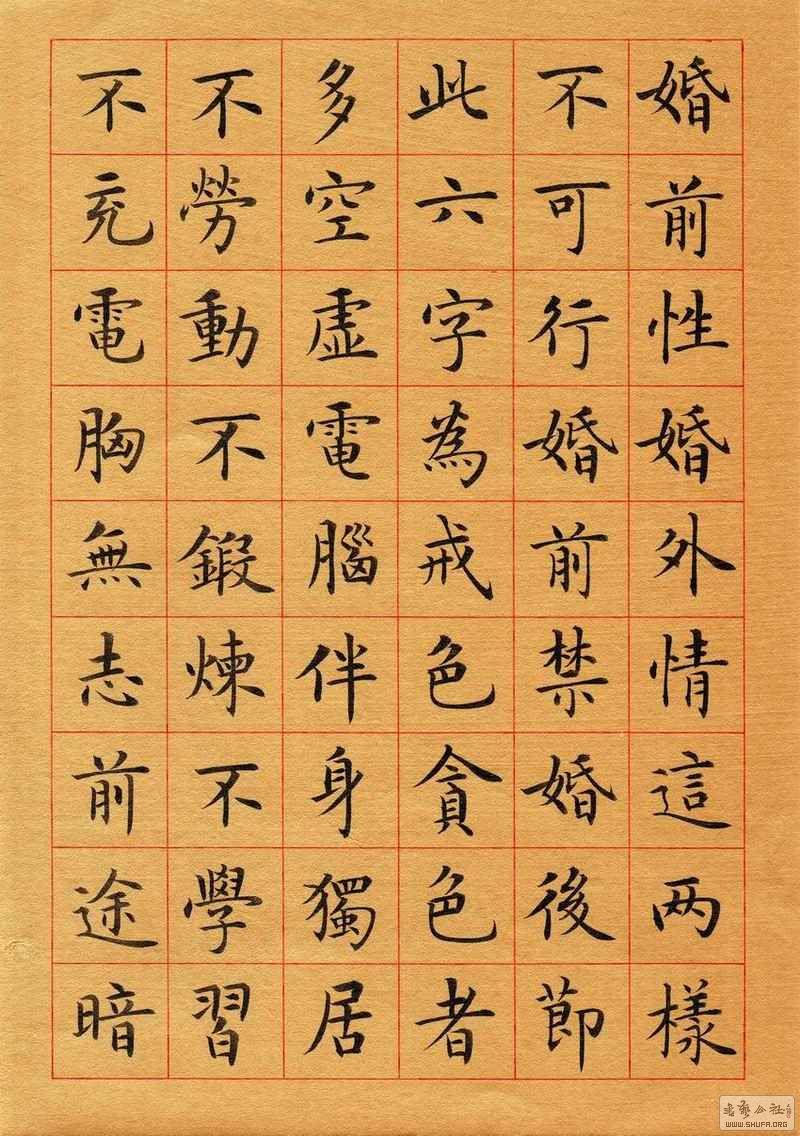 婚前性婚外情這两樣
不可行婚前禁婚後節
此六字為戒色貪色者
多空虛電腦伴身獨居
不勞動不鍛煉不學習
不充電胸無志前途暗
WWW.SHUFA.ORG